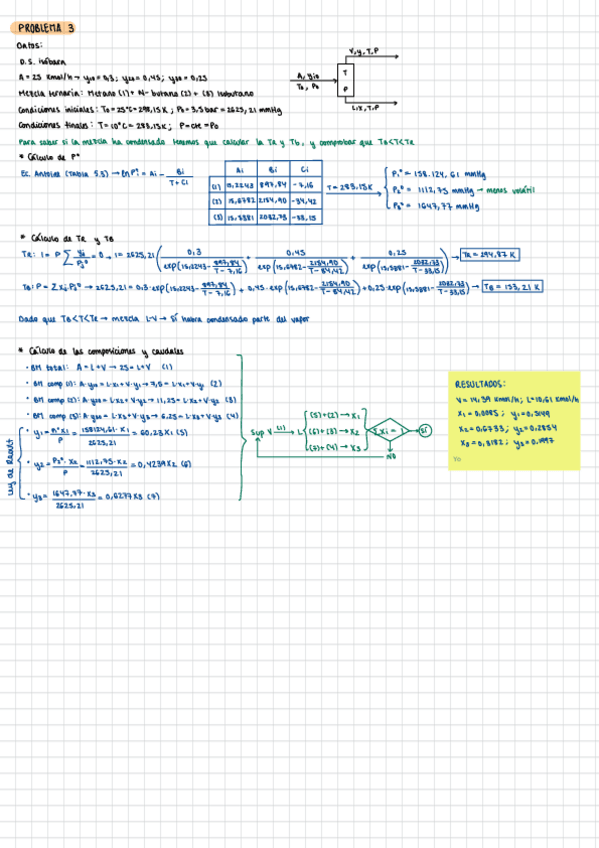 PROBLEMA 3
Datos:
D.S. isóbara
A = 25 kmol/h → y10 = 0,3; y20 = 0,45; y30 = 0,25
Mezcla ternaria: Metano (1) + N-butano (2) + (3) Isobutano
Condiciones iniciales: T0 = 25°C = 298,15 K; P0 = 3,5 bar = 2625,21 mmHg
Condiciones finales: T = 10°C = 283,15 K; P = cte = P0
V, y, T, P
A, yi0
T0, P0
T
P
L, x, T, P
Para saber si la mezcla ha condensado tenemos que calcular la TR y Tb, y comprobar que TB<T<TR
* Cálculo de P°
Ec. Antoine (Tabla 5.3) → Ln Pi° = Ai - Bi / T + Ci
Ai Bi Ci
(1) 15,2243 897,84 -7,16
(2) 15,6782 2154,90 -34,42
(3) 15,5381 2032,73 -33,15
T = 283,15K
P1° = 158.124,61 mmHg
P2° = 1112,75 mmHg → menos volátil
P3° = 1647,77 mmHg
* Cálculo de TR y TB
TR: 1 = P ∑ yj / Pj° = 0 → 1 = 2625,21 ( 0,3 / exp(15,2243 - 897,84 / T - 7,16) + 0,45 / exp(15,6782 - 2154,90 / T - 34,42) + 0,25 / exp(15,5381 - 2032,73 / T - 33,15) ) → TR = 294,87 K
TB: P = ∑ xi·Pi° → 2625,21 = 0,3·exp(15,2243 - 897,84 / T - 7,16) + 0,45·exp(15,6782 - 2154,90 / T - 34,42) + 0,25·exp(15,5381 - 2032,73 / T - 33,15) → TB = 133,21 K
Dado que TB<T<TR → mezcla L-V → Sí habrá condensado parte del vapor
* Cálculo de las composiciones y caudales
· BM total: A = L+V → 25 = L+V (1)
· BM comp (1): A·y10 = L·x1 + V·y1 → 7,5 = L·x1 + V·y1 (2)
· BM comp (2): A·y20 = L·x2 + V·y2 → 11,25 = L·x2 + V·y2 (3)
· BM comp (3): A·y30 = L·x3 + V·y3 → 6,25 = L·x3 + V·y3 (4)
Ley de Raoult
· y1 = P1°·x1 / P = 158124,61·x1 / 2625,21 = 60,23 x1 (5)
· y2 = P2°·x2 / P = 1112,75·x2 / 2625,21 = 0,4239 x2 (6)
· y3 = 1647,77·x3 / 2625,21 = 0,6277 x3 (7)
Sup V (1)→ L
(5)+(2) → x1
(6)+(3) → x2
(7)+(4) → x3
∑ xi = 1
SÍ
NO
RESULTADOS:
V = 14,39 kmol/h; L = 10,61 kmol/h
x1 = 0,0085; y1 = 0,5149
x2 = 0,6733; y2 = 0,2854
x3 = 0,3182; y3 = 0,1997
Yo